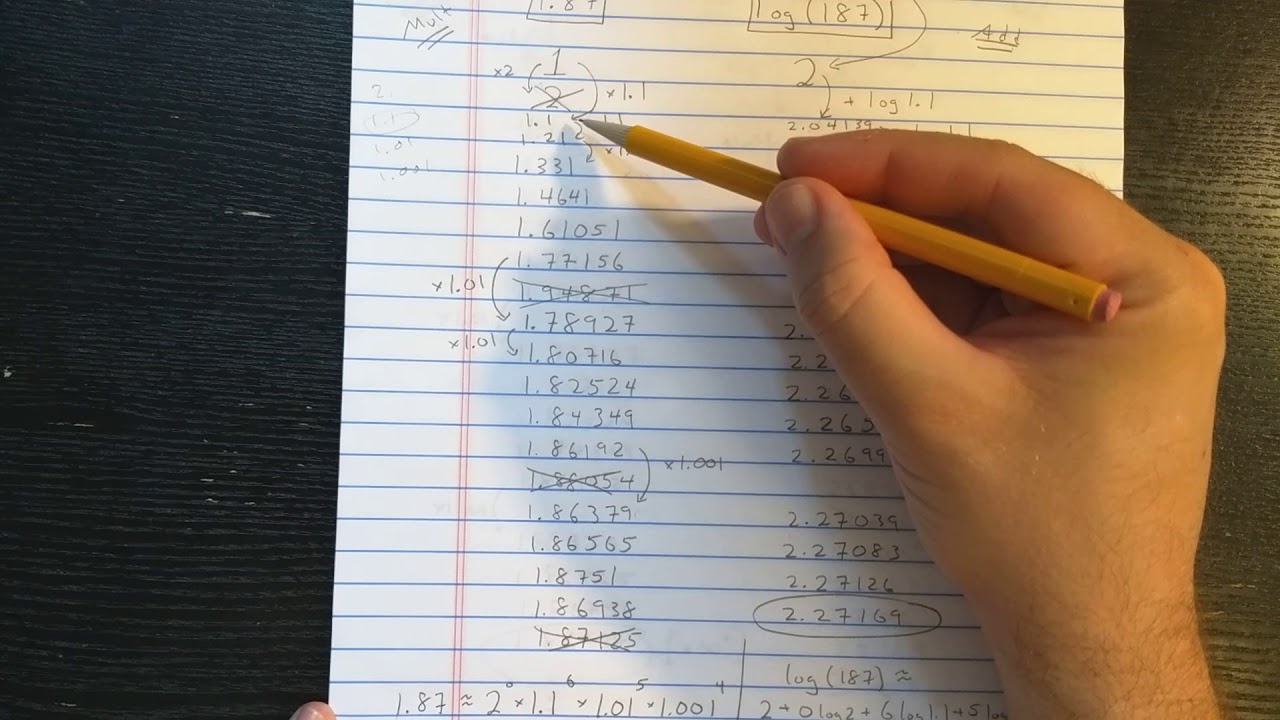 Mult 1.87 log(187) Add
×2 1 2
2. 2 ×1.1 + log 1.1
1.1 1.1 2.04139
1.01 1.21
1.001 1.331
1.4641
1.61051
1.77156
×1.01 1.94871
1.78927 2.
×1.01 1.80716 2.2
1.82524 2.26
1.84349 2.265
1.86192 ×1.001 2.2699
1.88054
1.86379 2.27039
1.86565 2.27083
1.8751 2.27126
1.86938 2.27169
1.87125
log(187) ≈
1.87 ≈ 2⁰ × 1.1⁶ × 1.01⁵ × 1.001⁴ 2 + 0 log 2 + 6 log 1.1 + 5 log